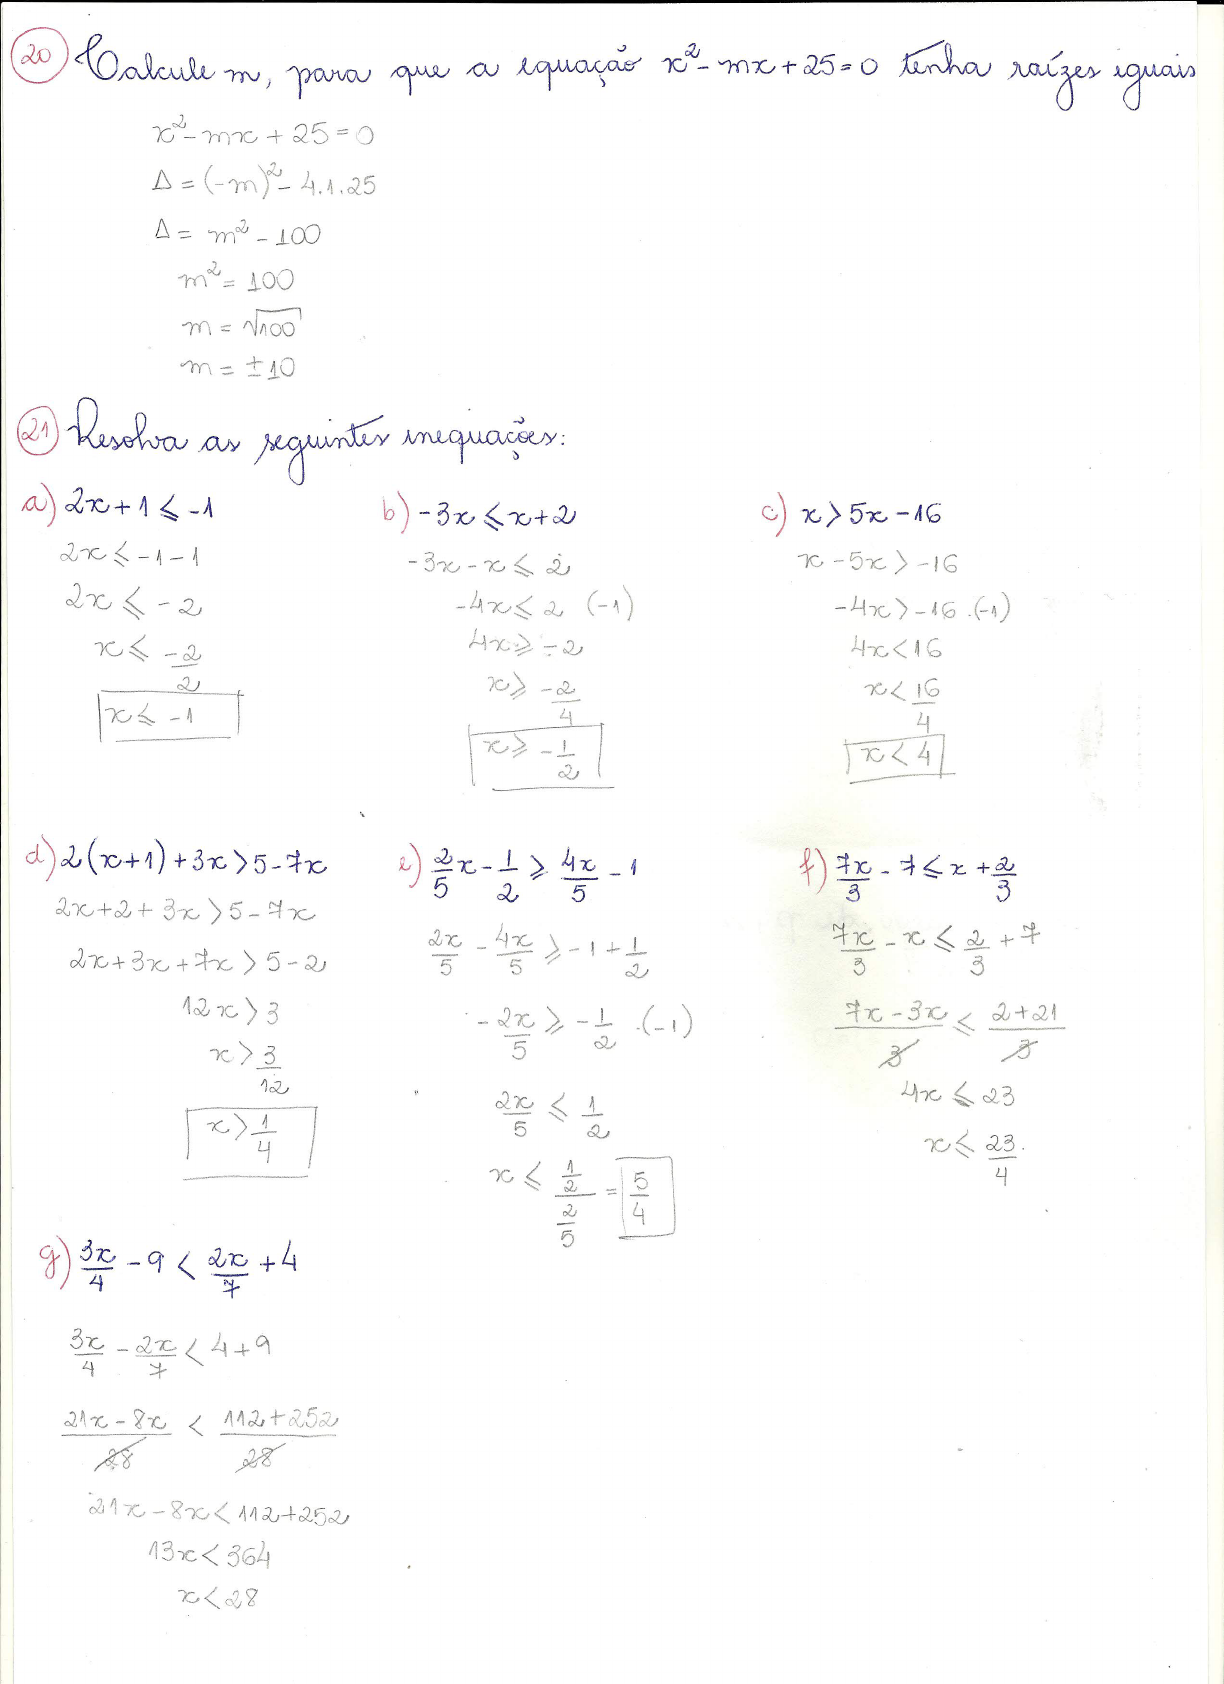 20 Calcule m, para que a equação x² - mx + 25 = 0 tenha raízes iguais
x² - mx + 25 = 0
Δ = (-m)² - 4.1.25
Δ = m² - 100
m² = 100
m = √100
m = ±10
21 Resolva as seguintes inequações:
a) 2x + 1 ⩽ -1
2x ⩽ -1 -1
2x ⩽ -2
x ⩽ -2/2
x ⩽ -1
b) -3x ⩽ x + 2
-3x - x ⩽ 2
-4x ⩽ 2 (-1)
4x ⩾ -2
x ⩾ -2/4
x ⩾ -1/2
c) x > 5x - 16
x - 5x > -16
-4x > -16 .(-1)
4x < 16
x < 16/4
x < 4
d) 2(x+1) + 3x > 5 - 7x
2x + 2 + 3x > 5 - 7x
2x + 3x + 7x > 5 - 2
12x > 3
x > 3/12
x > 1/4
e) 2/5 x - 1/2 ⩾ 4x/5 - 1
2x/5 - 4x/5 ⩾ -1 + 1/2
-2x/5 ⩾ -1/2 .(-1)
2x/5 ⩽ 1/2
x ⩽ (1/2)/(2/5) = 5/4
f) 7x/3 - 7 ⩽ x + 2/3
7x/3 - x ⩽ 2/3 + 7
(7x - 3x)/3 ⩽ (2 + 21)/3
4x ⩽ 23
x ⩽ 23/4
g) 3x/4 - 9 < 2x/7 + 4
3x/4 - 2x/7 < 4 + 9
(21x - 8x)/28 < (112 + 252)/28
21x - 8x < 112 + 252
13x < 364
x < 28